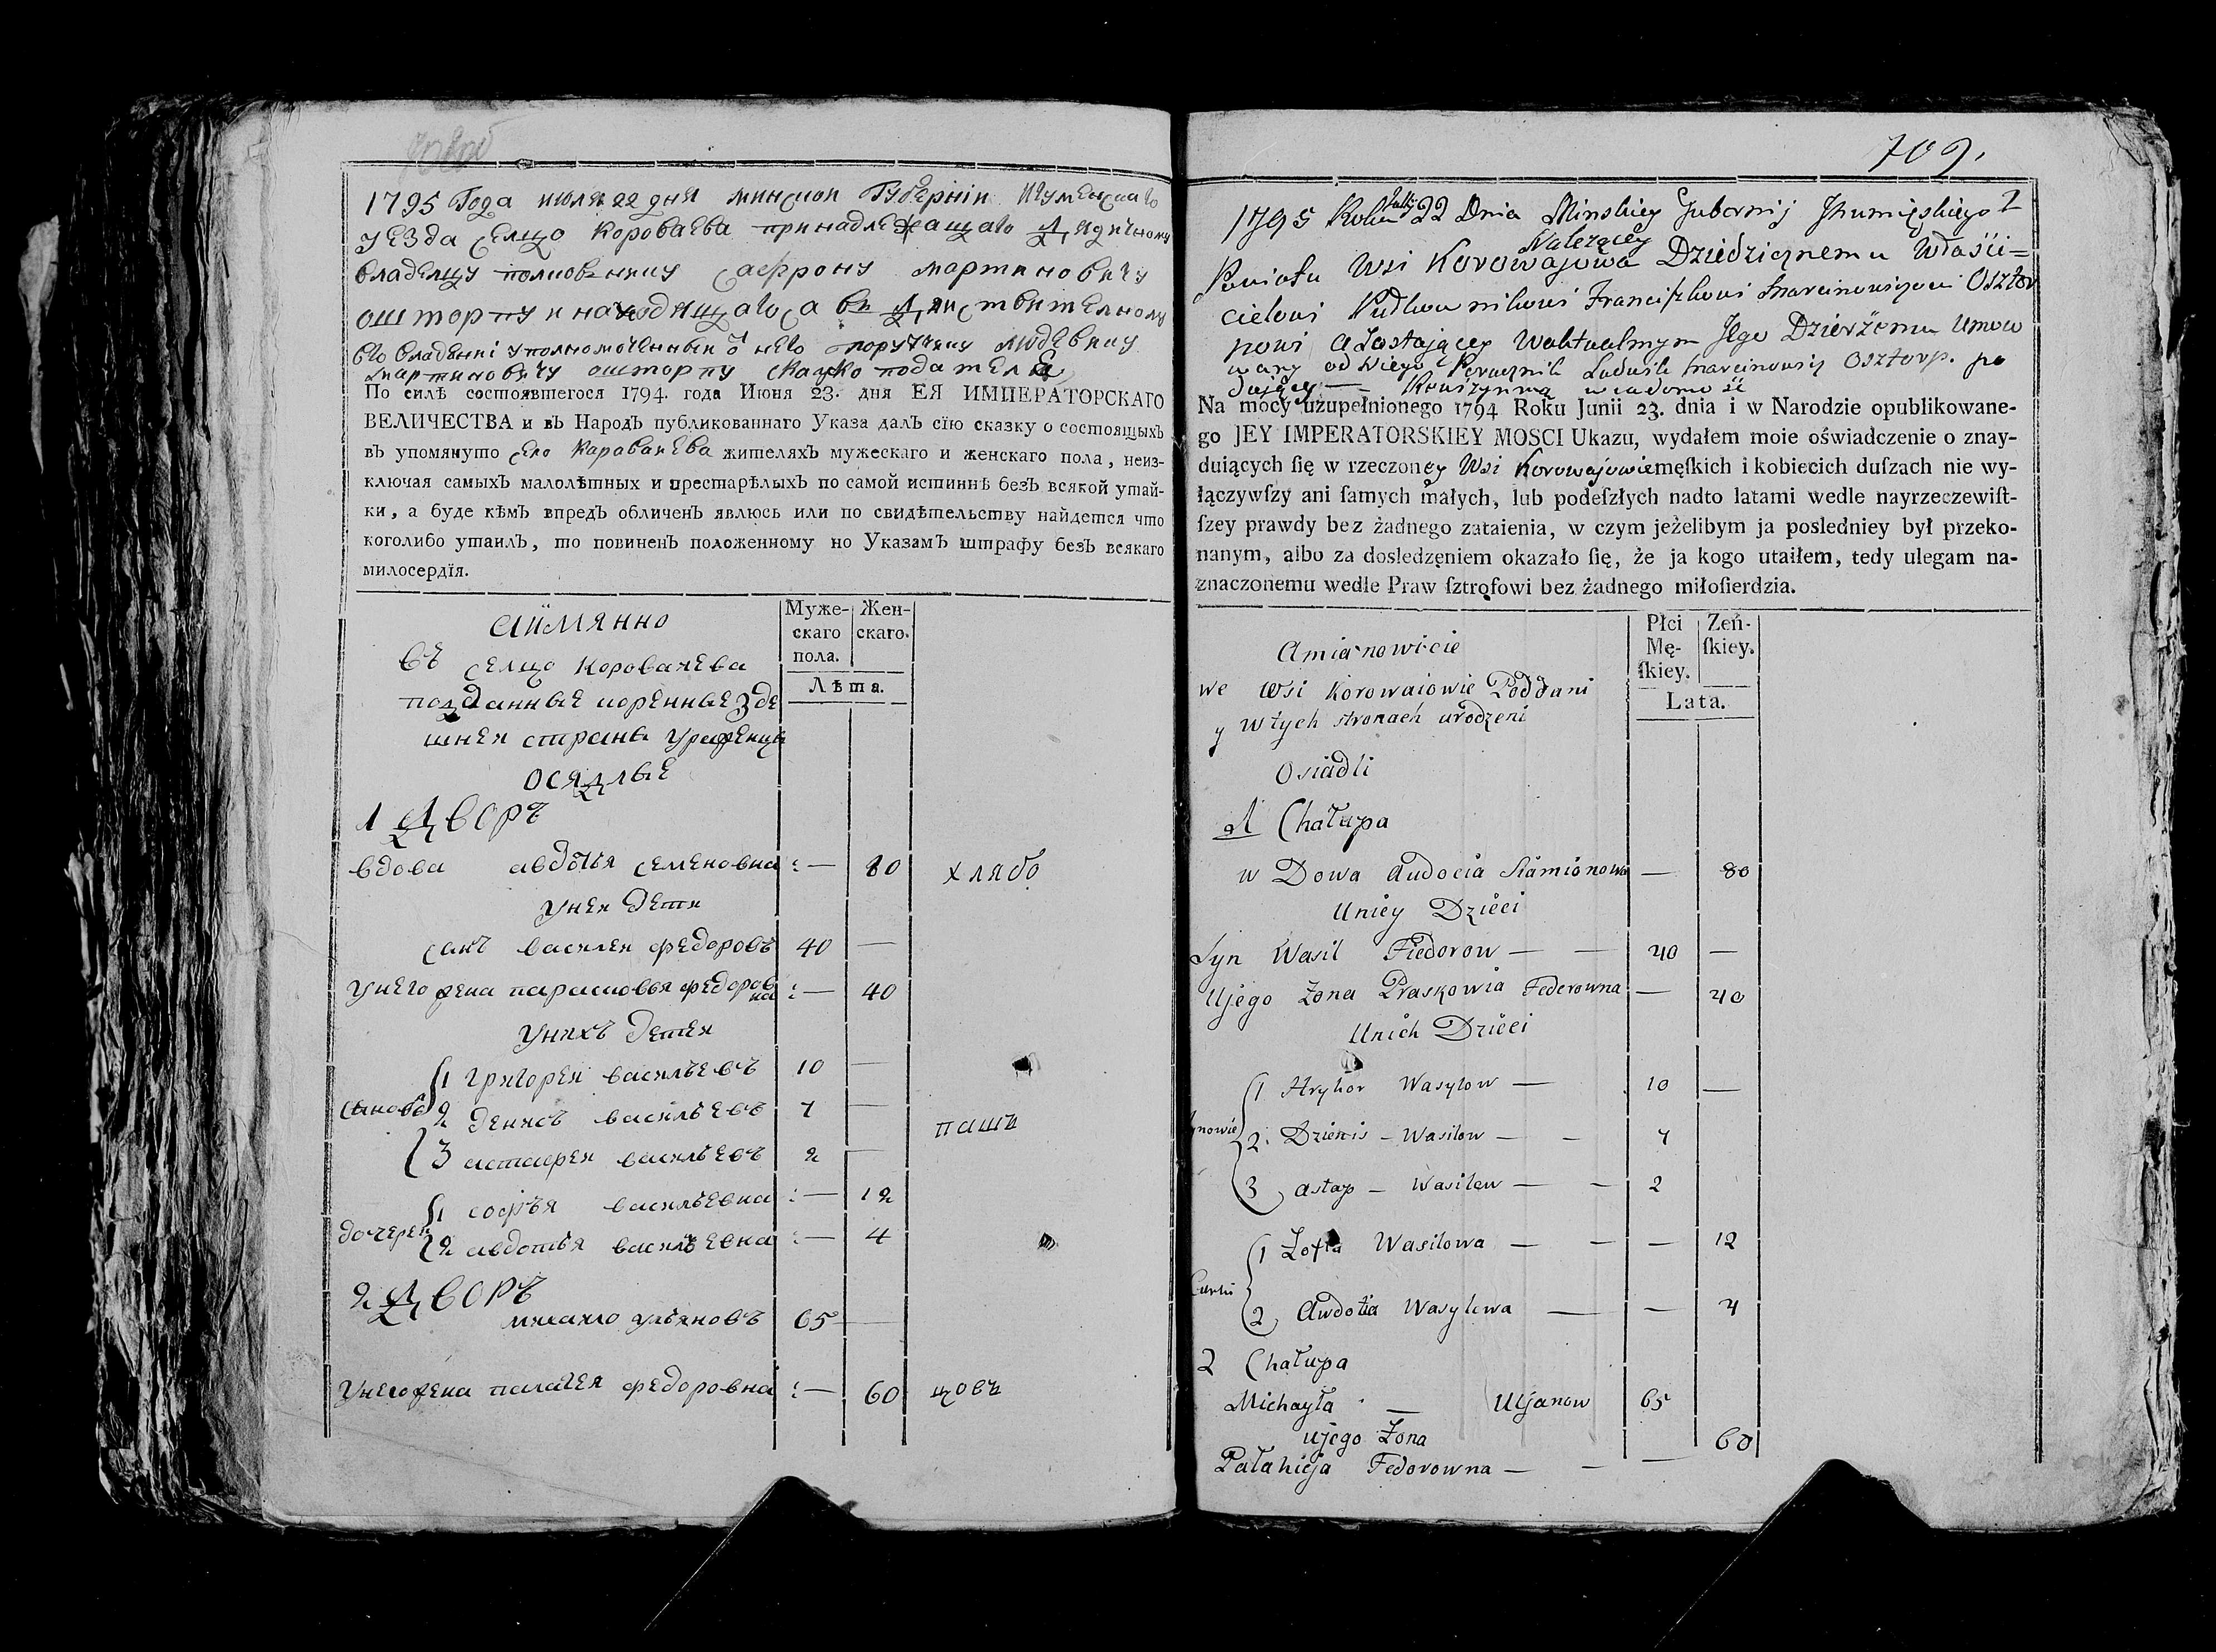 1795 Года июля 22 дня минской Губерніи Игуменскаго
уезда селцо Короваева принадлежащаго дедичному
владелцу полковнику мартиновичу
ошторпу и находящагося в действителномъ
его владении уполномоченный от него поручику людвику
мартиновичу ошторпу скаску подателя
По силѣ состоявшегося 1794. года Июня 23. дня ЕЯ ИМПЕРАТОРСКАГО
ВЕЛИЧЕСТВА и въ Народъ публикованнаго Указа далъ сїю сказку о состоящыхъ
въ упомянуто село Караваева жителяхъ мужескаго и женскаго пола, неиз-
ключая самыхъ малолѣтных и престарѣлыхъ по самой истиннѣ безъ всякой утай-
ки, а буде кѣмъ впредъ обличенъ явлюсь или по свидѣтельству найдется что
коголибо утаилъ, то повиненъ положенному по Указамъ штрафу безъ всякаго
милосердїя.
аимянно
Муже-
скаго
пола.
Жен-
скаго.
Лѣта.
въ селцо Короваева
подданные коренные зде
шней страны уроженцы
оседлые
1 Дворъ
вдова авдотья семеновна :— 80 хлябо
у ней дети
сынъ василей федоровъ 40 —
у него жена парасковья федоровна :— 40
у нихъ детей
сыновья
1 григорей васильевъ 10 —
2 денисъ васильевъ 7 —
пашъ
3 астафей васильевъ 2 —
дочерей
1 софья васильевна :— 12
2 авдотья васильевна :— 4
2 Дворъ
михайло ульяновъ 65 —
у него жена палагея федоровна :— 60 цовъ
709.
1795 Roku Julij 22 Dnia Minskiey Gubernij Ihumięskiego
Powiatu Wsi Korowajowa Należącey Dziedzicznemu Właści=
cielowi Pułkownikowi Franciszkowi Marcinowiczowi Osztor
powi a Zostającey Waktualnym Jego Dzierżeniu Umow
wany od Niego Porucznik Ludwik Marcinowicz Osztorp. po
dający —
Na mocy uzupełnionego 1794 Roku Junii 23. dnia i w Narodzie opublikowane-
go JEY IMPERATORSKIEY MOSCI Ukazu, wydałem moie oświadczenie o znay-
duiących ſię w rzeczoney Wsi Korowajowie męſkich i kobiecich duſzach nie wy-
łączywſzy ani ſamych małych, lub podeſzłych nadto latami wedle nayrzeczewiſt-
ſzey prawdy bez żadnego zataienia, w czym jeżelibym ja posledniey był przeko-
nanym, albo za dosledzęniem okazało ſię, że ja kogo utaiłem, tedy ulegam na-
znaczonemu wedle Praw ſztrofowi bez żadnego miłoſierdzia.
Amianowicie
Płci
Mę-
ſkiey.
Zeń-
ſkiey.
Lata.
we wsi Korowaiowie Poddani
y w tych stronach urodzeni
Osiadli
1 Chałupa
w Dowa Audocia Siamionowa — 80
Uniey Dzieci
Syn Wasil Fiedorow — — 40 —
Ujego Żona Praskowia Federowna — 40
Unich Dzieci
1 Hryhor Wasylow — 10 —
ynowie
2. Dzienis — Wasilow — — 7
3 astap — Wasilow — — 2
1 Zofia Wasilowa — — — 12
Curki
2 Awdotia Wasylowa — — 4
2 Chałupa
Michayła — Uljanow 65
ujego Żona 60
Pałahieja Fedorowna — — —